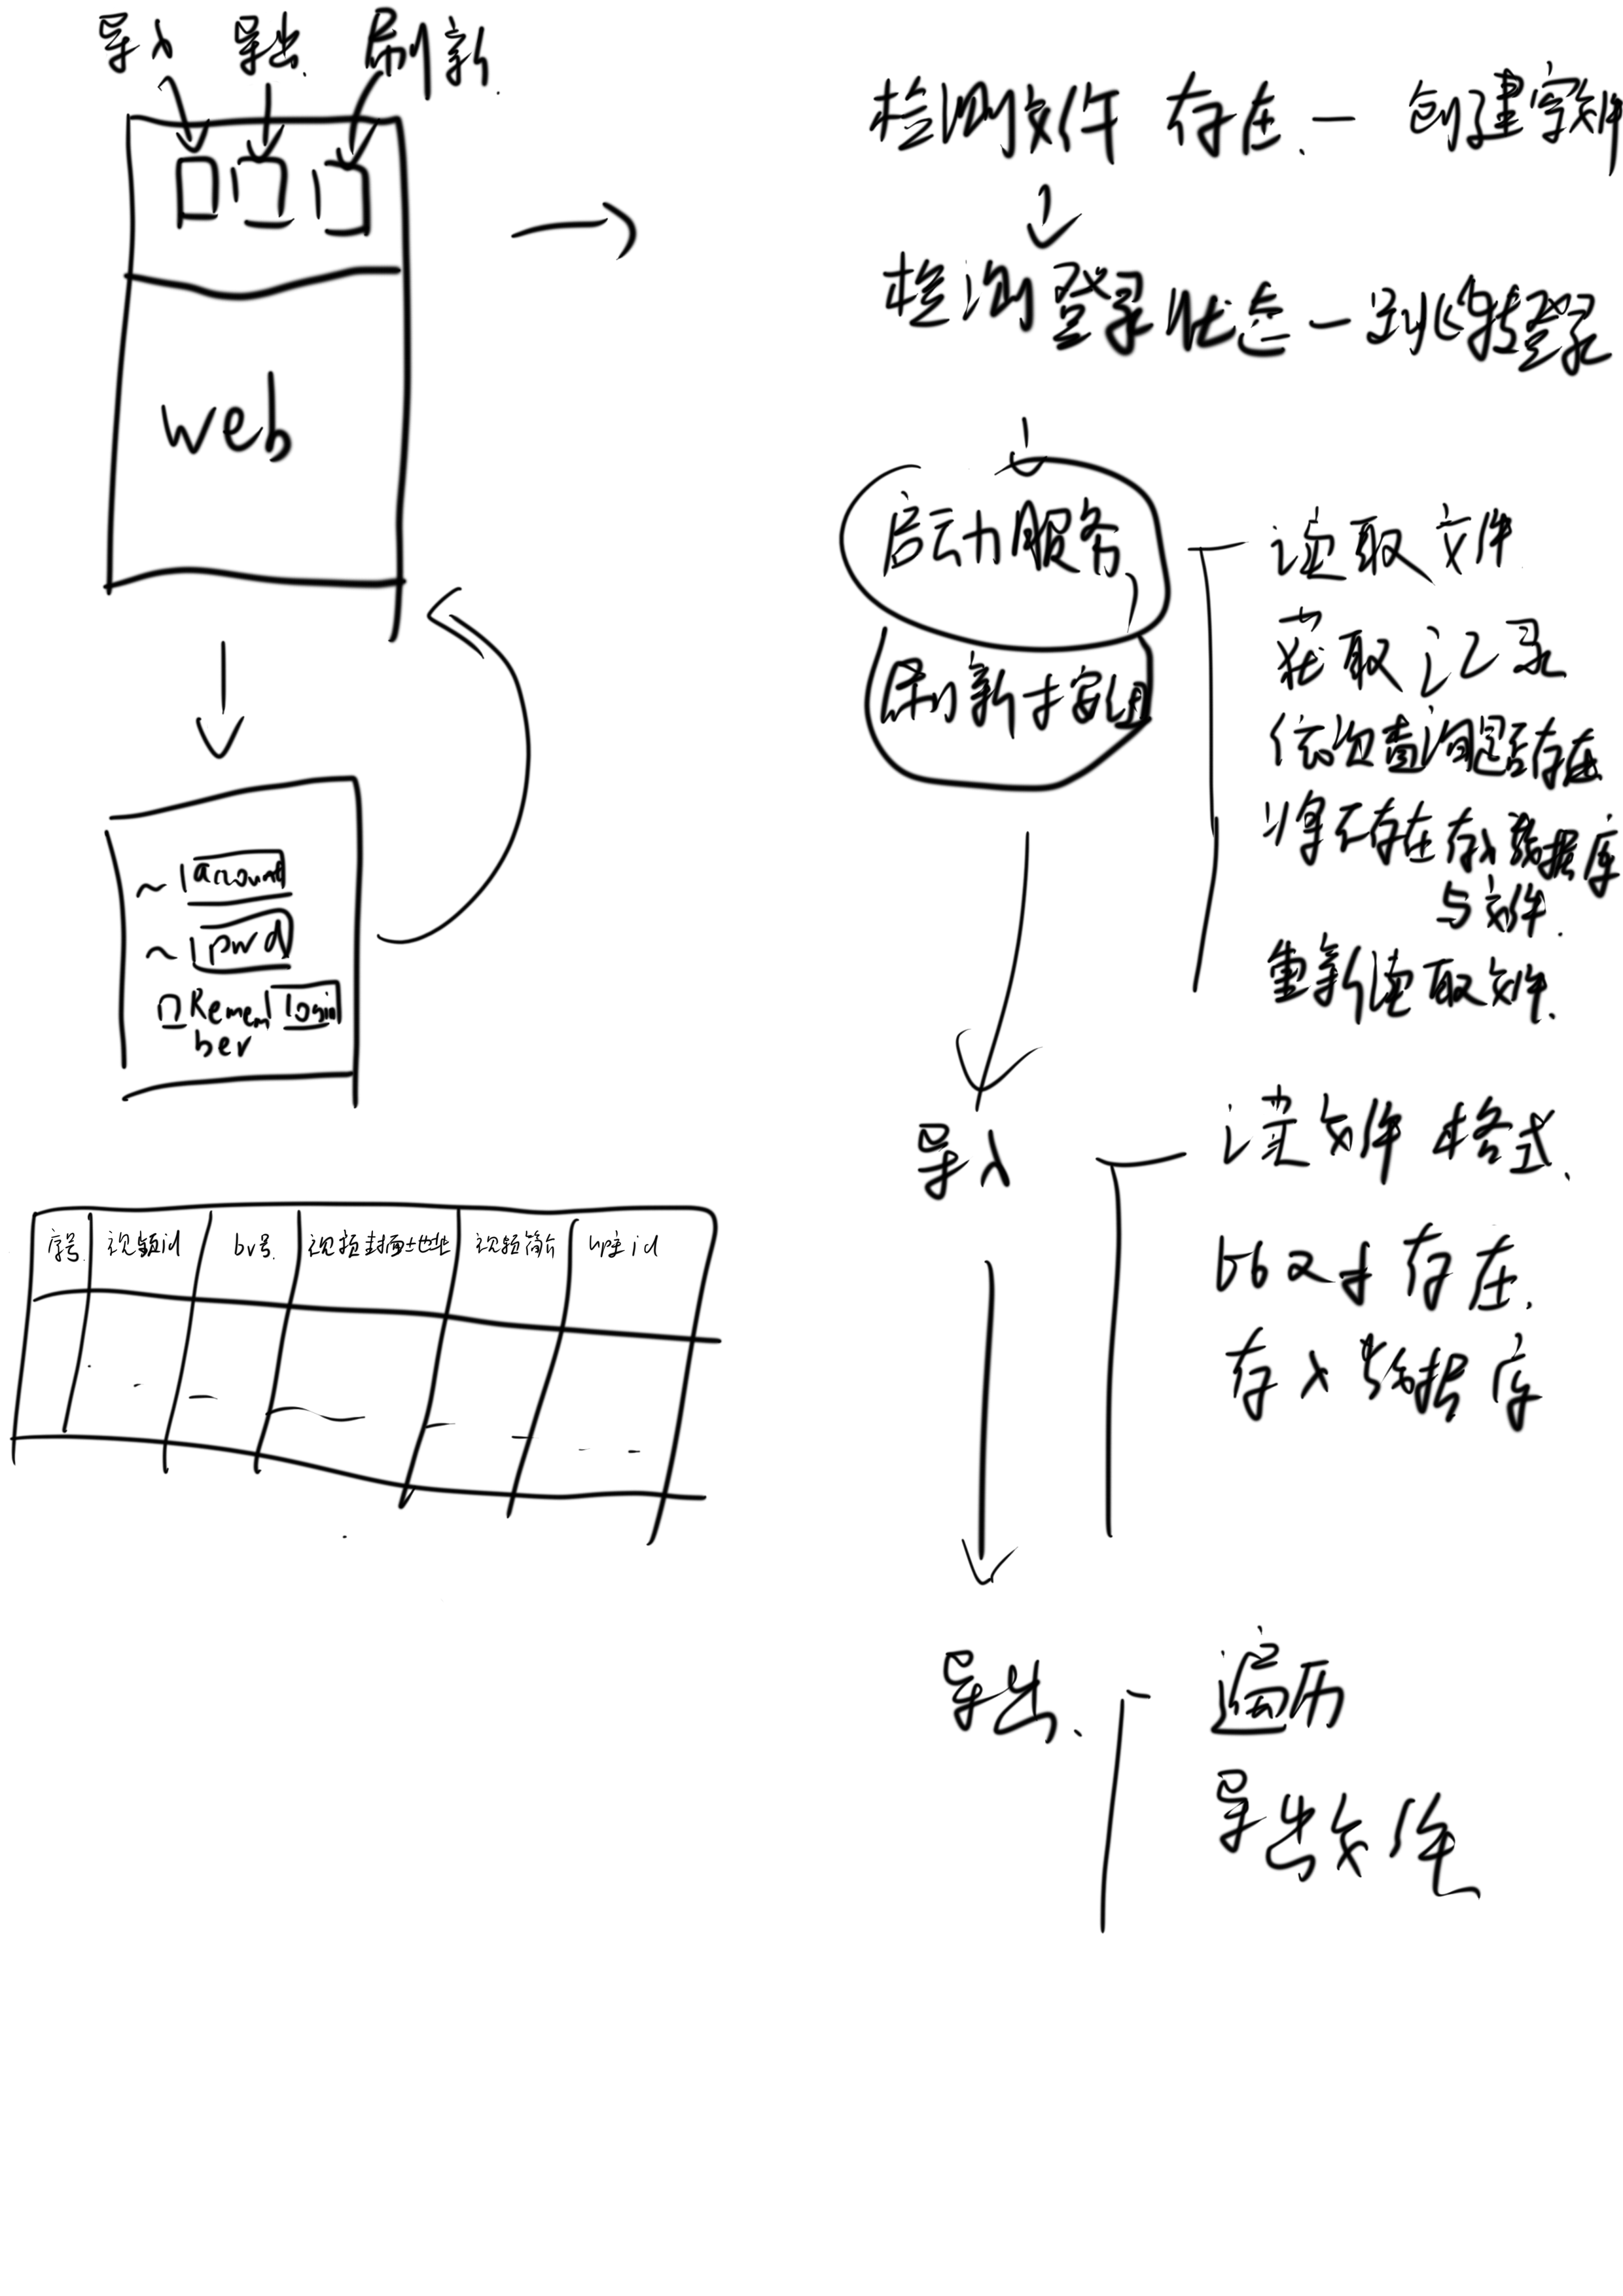 导入 导出. 刷新.
web
account
pwd
Remem Login
ber
序号. 视频id bv号. 视频封面地址 视频简介 up主id
检测文件 存在. — 创建文件
检测登录状态 — 跳转登录
启动服务
刷新按钮
读取文件
获取记录
依次查询是否存在
将不存在存入数据库
与文件.
重新读取文件.
导入
读文件 格式.
比对存在.
存入数据库
导出.
遍历
导出文件